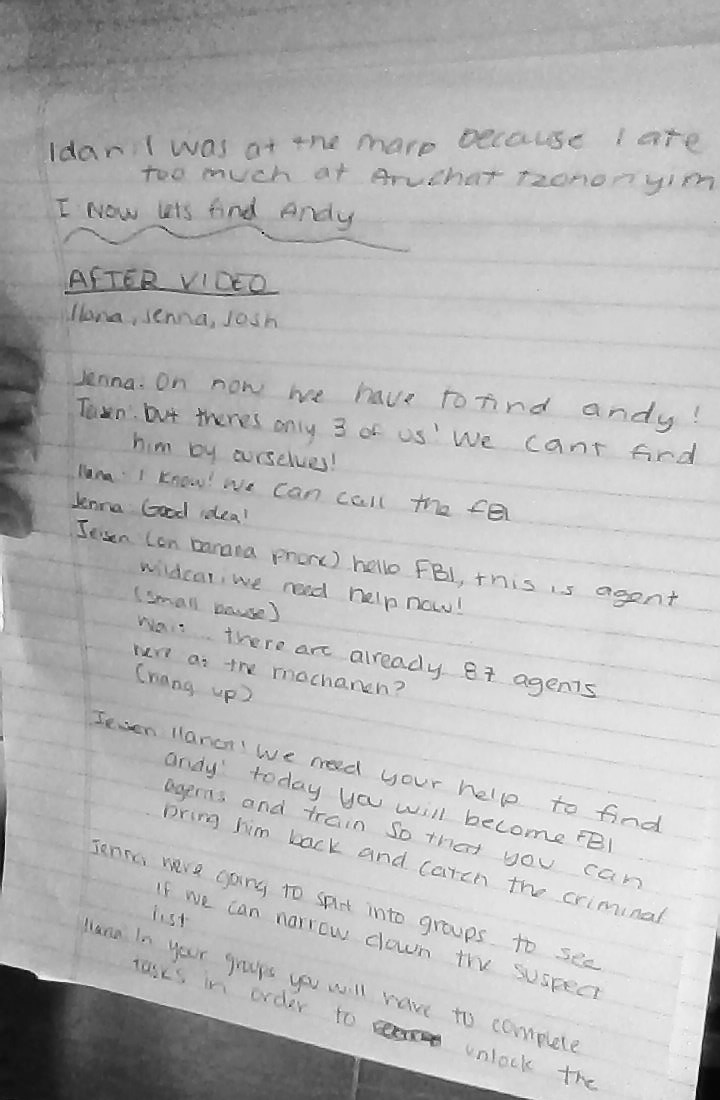 Idan: I was at the marp because I ate
too much at Aruchat tzohoriyim
I Now lets find Andy
AFTER VIDEO
Ilana, Jenna, Josh
Jenna: Oh now we have to find andy!
but theres only 3 of us! We cant find
him by ourselves!
Ilana: I know! We can call the FBI
Jenna Good idea!
(on banana phone) hello FBI, this is agent
wildcat, we need help now!
(small pause)
wait... there are already 87 agents
here at the machaneh?
(hang up)
Ilana! We need your help to find
andy! today you will become FBI
agents and train so that you can
bring him back and catch the criminal
Jenna: were going to split into groups to see
if we can narrow down the suspect
list
Ilana In your groups you will have to complete
tasks in order to unlock the